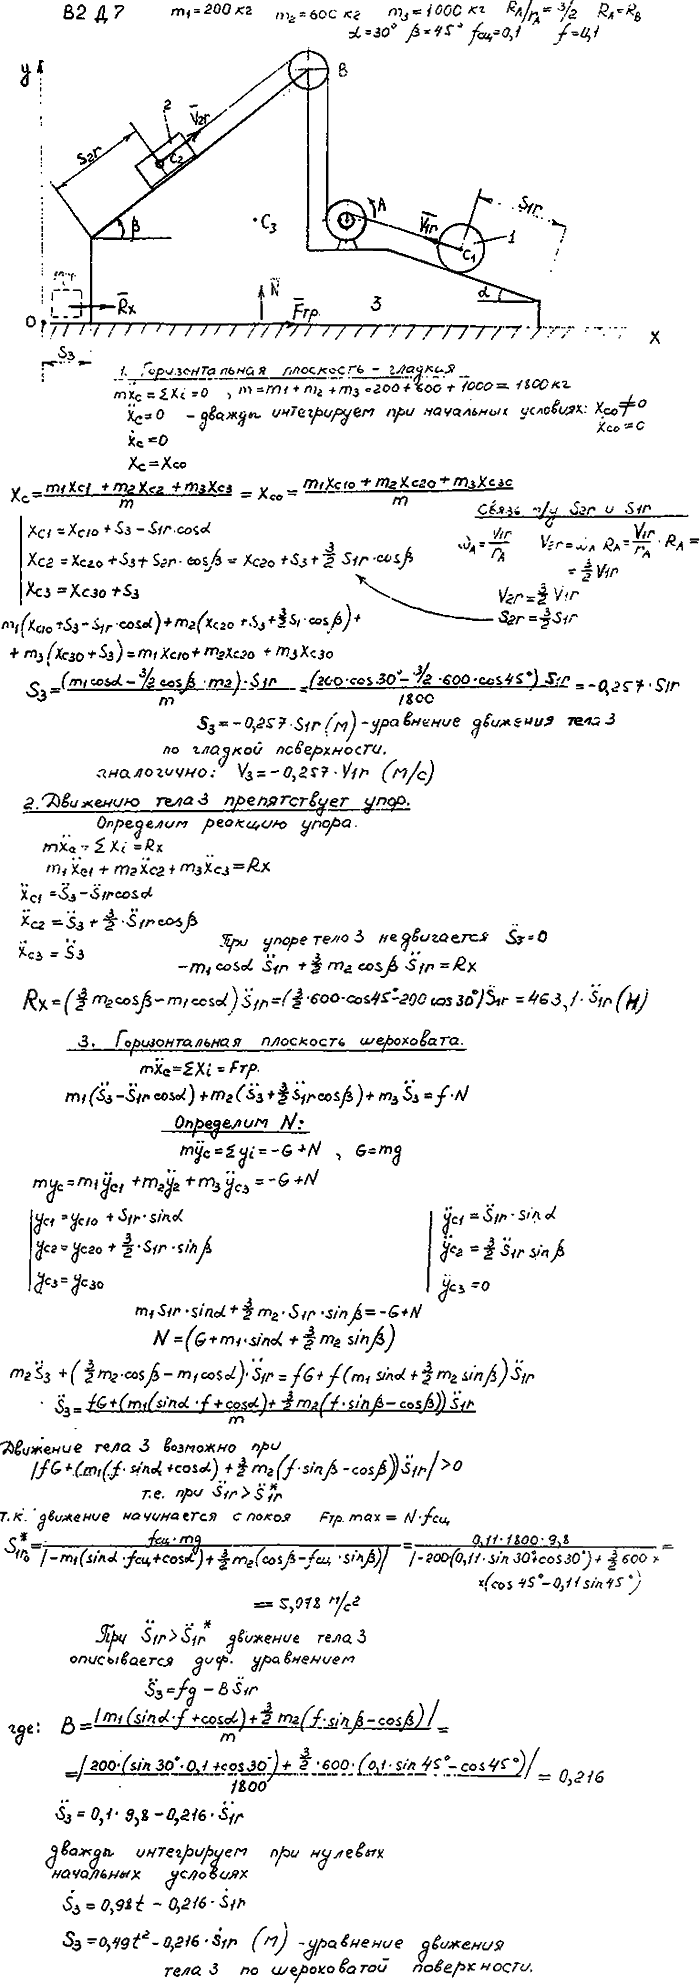 В2 Д7 m1=200 кг m2=600 кг m3=1000 кг RA/rA=3/2 RA=RB
α=30° β=45° fсц=0,1 f=0,1
y
B
2
V2r
S2r
C2
β
C3
A
V1r
S1r
1
C1
α
Rx
N
Fтр.
3
O
x
S3
1. Горизонтальная плоскость - гладкая
mẍc=ΣXi=0 , m=m1+m2+m3=200+600+1000=1800 кг
ẍc=0 - дважды интегрируем при начальных условиях: xco≠0
ẋco=0
ẋc=0
xc=xco
xc=(m1xc1+m2xc2+m3xc3)/m=xco=(m1xc10+m2xc20+m3xc30)/m
Связь м/у S2r и S1r
xc1=xc10+S3-S1r·cosα
ωA=V1r/rA V2r=ωA·RA=V1r/rA·RA=
xc2=xc20+S3+S2r·cosβ=xc20+S3+3/2 S1r·cosβ
=3/2 V1r
xc3=xc30+S3
V2r=3/2 V1r
S2r=3/2 S1r
m1(xc10+S3-S1r·cosα)+m2(xc20+S3+3/2 S1·cosβ)+
+m3(xc30+S3)=m1xc10+m2xc20+m3xc30
S3=(m1cosα-3/2cosβ·m2)·S1r/m=(200·cos30°-3/2·600·cos45°)S1r/1800=-0,257·S1r
S3=-0,257·S1r(м)-уравнение движения тела 3
по гладкой поверхности.
аналогично: V3=-0,257·V1r (м/с)
2. Движению тела 3 препятствует упор.
Определим реакцию упора.
mẍc=ΣXi=Rx
m1ẍc1+m2ẍc2+m3ẍc3=Rx
ẍc1=S̈3-S̈1rcosα
ẍc2=S̈3+3/2·S̈1rcosβ
ẍc3=S̈3
При упоре тело 3 не двигается S̈3=0
-m1cosα S̈1r+3/2 m2cosβ S̈1r=Rx
Rx=(3/2 m2cosβ-m1cosα)S̈1r=(3/2·600·cos45°-200cos30°)S̈1r=463,1·S̈1r(Н)
3. Горизонтальная плоскость шероховата.
mẍc=ΣXi=Fтр.
m1(S̈3-S̈1rcosα)+m2(S̈3+3/2S̈1rcosβ)+m3S̈3=f·N
Определим N:
mÿc=Σyi=-G+N , G=mg
myc=m1ÿc1+m2ÿ2+m3ÿc3=-G+N
yc1=yc10+S1r·sinα
ÿc1=S̈1r·sinα
yc2=yc20+3/2·S1r·sinβ
ÿc2=3/2 S̈1r sinβ
yc3=yc30
ÿc3=0
m1S1r·sinα+3/2 m2·S1r·sinβ=-G+N
N=(G+m1·sinα+3/2 m2 sinβ)
m2S̈3+(3/2 m2·cosβ-m1cosα)·S̈1r=fG+f(m1sinα+3/2 m2sinβ)S̈1r
S̈3=(fG+(m1(sinα·f+cosα)+3/2 m2(f·sinβ-cosβ))S̈1r)/m
Движение тела 3 возможно при
|fG+(m1(f·sinα+cosα)+3/2 m2(f·sinβ-cosβ))S̈1r|>0
т.е. при S̈1r>S̈1r*
т.к. движение начинается с покоя Fтр.max=N·fсц
S̈1r0*=fсц·mg/|-m1(sinα·fсц+cosα)+3/2 m2(cosβ-fсц·sinβ)|=0,11·1800·9,8/|-200(0,11·sin30°+cos30°)+3/2 600×
×(cos45°-0,11sin45°)=
=5,078 м/с2
При S̈1r>S̈1r* движение тела 3
описывается диф. уравнением
S̈3=fg-BS̈1r
где: B=|m1(sinα·f+cosα)+3/2 m2(f·sinβ-cosβ)|/m=
=|200·(sin30°·0,1+cos30°)+3/2·600·(0,1·sin45°-cos45°)|/1800=0,216
S̈3=0,1·9,8-0,216·S̈1r
дважды интегрируем при нулевых
начальных условиях
Ṡ3=0,98t-0,216·Ṡ1r
S3=0,49t2-0,216·S1r (м) -уравнение движения
тела 3 по шероховатой поверхности.